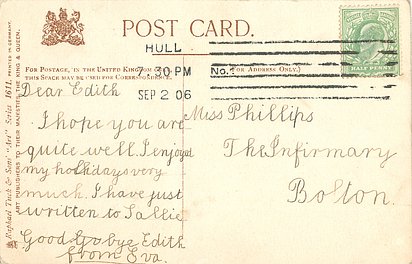 POST CARD.
HULL
7.30 PM
SEP 2 06
No.1
FOR POSTAGE, IN THE UNITED KINGDOM ONLY,
THIS SPACE MAY BE USED FOR CORRESPONDENCE.
(FOR ADDRESS ONLY.)
HALF PENNY
Raphael Tuck & Sons' "Art" Series 1611. PRINTED IN GERMANY.
ART PUBLISHERS TO THEIR MAJESTIES THE KING & QUEEN.
Dear Edith
I hope you are
quite well. I enjoyed
my holidays very
much. I have just
written to Sallie
Good Go bye Edith
from Eva.
Miss Phillips
The Infirmary
Bolton.